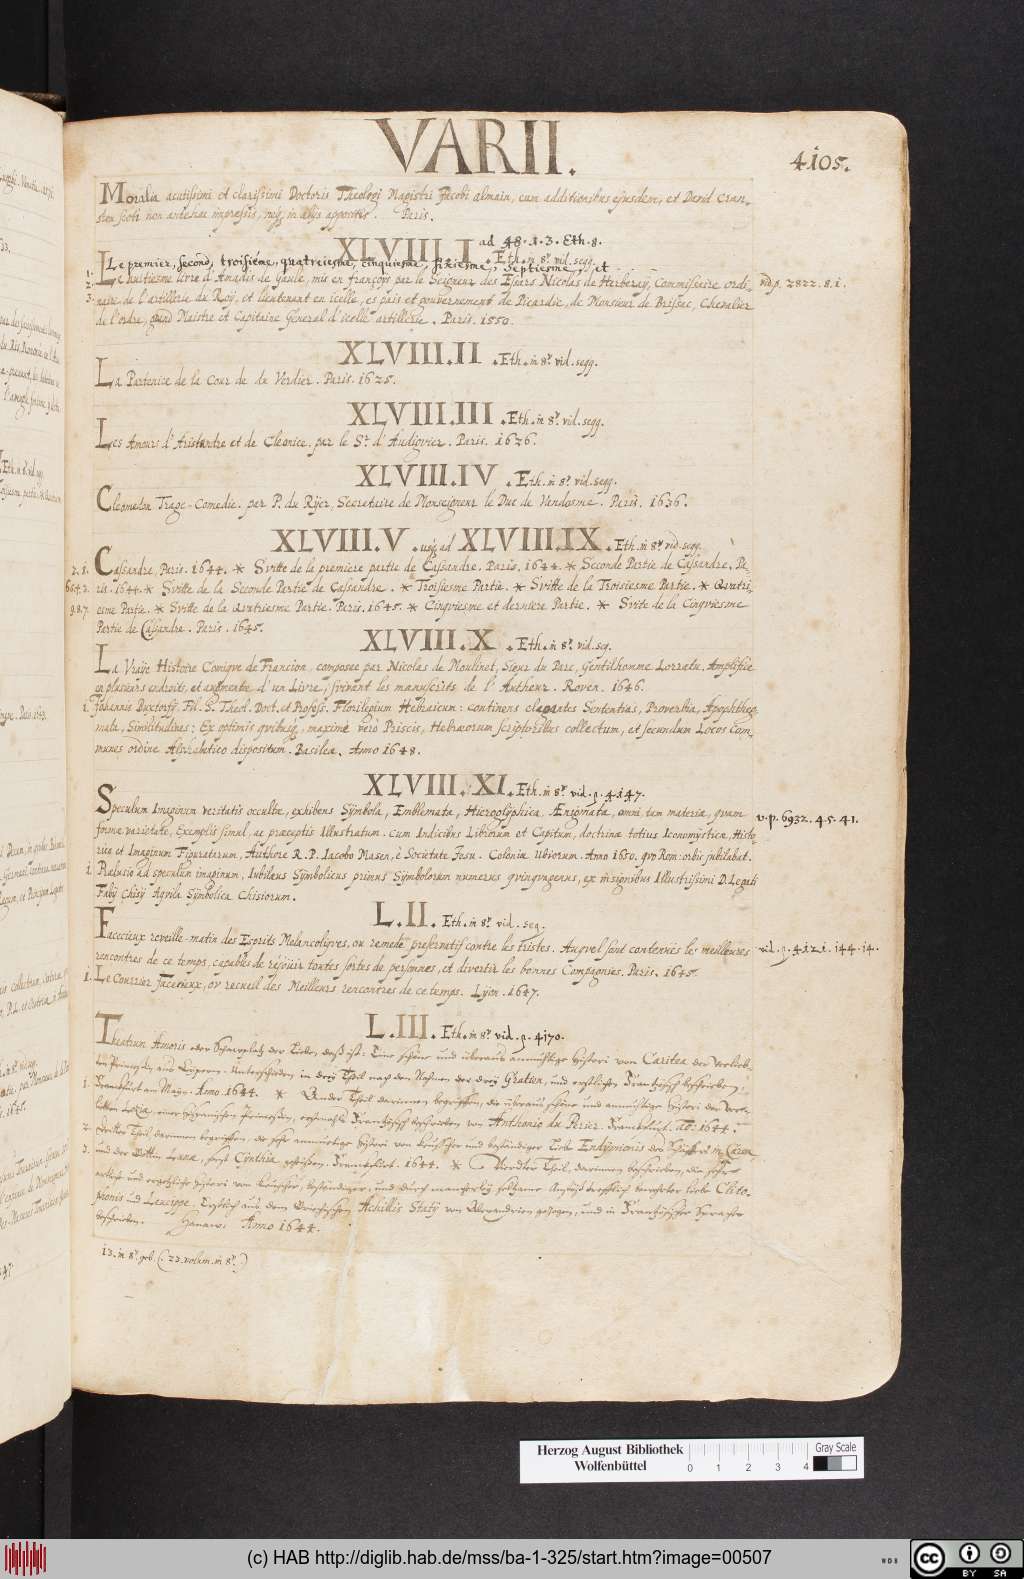 VARII.
4105.
Moralia acutissimi et clarissimi Doctoris Theologi Magistri Jacobi almain, cum additionibus ejusdem, et David Cran-
ston Scoti non antehac impressis, suis in locis appositis. Paris.
ad 48.1.3. Eth. 8.
XLVIII.I .Eth. in 8º. vid. segg.
Le premier, second, troisiéme, quatreiesme, cinquiesme, sixiesme, septiesme, et
1. Le huitiesme livre d'Amadis de Gaule, mis en françoys par le Seigneur des Essars Nicolas de Herberay, Commissaire ordi- vid p. 2822. 8. 1.
2. 3. naire de l'artillerie du Roy, et lieutenant en icelle, es pais et gouvernement de Picardie, de Monsieur de Brissac, Chevalier
de l'ordre, grand Maistre et Capitaine General d'icelle artillerie. Paris. 1550.
XLVIII.II .Eth. in 8º. vid. segg.
La Partenice de la Cour de du Verdier. Paris. 1625.
XLVIII.III .Eth. in 8º. vid. segg.
Les Amours d'Aristandre et de Cleonice, par le Sr. d'Audiguier. Paris. 1626.
XLVIII.IV . Eth. in 8º. vid. segg.
Cleomedon Trage-Comedie. par P. du Rijer, Secretaire de Monseigneur le Duc de Vandosme. Paris. 1636.
XLVIII.V . usq; ad XLVIII.IX . Eth. in 8º. vid. segg.
2. 1. Cassandre, Paris. 1644. * Svitte de la premiere partie de Cassandre. Paris. 1644. * Seconde Partie de Cassandre. Pa-
6. 5. 4. 3. ris. 1644. * Svitte de la Seconde Partie de Cassandre. * Troisiesme Partie. * Svitte de la Troisiesme Partie. * Qvatri-
9. 8. 7. esme Partie. * Svitte de la Qvatriesme Partie. Paris. 1645. * Cinqviesme et derniere Partie. * Svite de la Cinqviesme
Partie de Cassandre. Paris. 1645.
XLVIII.X . Eth. in 8º. vid. seg.
La Vraije Histoire Comiqve de Francion, composee par Nicolas de Moulinet, Sieur du Parc, Gentilhomme Lorrain, Amplifiée
en plusieurs endroits, et augmentée d'un Livre, suivant les manuscrits de l'Autheur. Roven. 1646.
1. Johannis Buxtorfij. Fil. S. Theol. Doct. et Profess. Florilegium Hebraicum: continens elegantes Sententias, Proverbia, Apophtheg-
mata, Similitudines: Ex optimis qvibusq;, maxime vero Priscis, Hebræorum scriptoribus collectum, et secundum Locos Com-
munes ordine Alphabetico dispositum. Basileæ. Anno 1648.
XLVIII.XI . Eth. in 8º. vid. g. 4147.
Speculum Imaginum veritatis occultæ, exhibens Symbola, Emblemata, Hieroglyphica, Ænigmata, omni, tam materiæ, quam v. p. 6932. 45. 41.
formæ varietate, Exemplis simul, ac præceptis Illustratum. cum Indicibus Librorum et Capitum, doctrinæ totius Iconomysticæ, Histo-
riæ et Imaginum Figuratarum, Authore R. P. Iacobo Masen, è Societate Jesu. Coloniæ Ubiorum. Anno 1650. qvo Rom: orbis jubilabat.
1. Prælusio ad speculum imaginum, Iubilæus Symbolicus primus Symbolorum numerus qvingvagenus, ex insignibus Illustrissimi D. Legati
Fabij Chisij Aqvila Symbolica Chisiorum.
L.II. Eth. in 8º. vid. seg.
Facecieux reveille-matin des Esprits Melancoliqves, ou remede preservatif contre les tristes. Auqvel sont contenües les meilleures vid. g. 4121. 144. 14.
rencontres de ce temps, capables de resjouir toutes sortes de personnes, et divertir les bonnes Compagnies. Paris. 1645.
1. Le Courrier Facetieux, ov recueil des Meilleurs rencontres de ce temps. Lyon. 1647.
L.III. Eth. in 8º. vid. g. 4170.
Theatrum Amoris oder Schauplatz der Liebe, das ist: Eine schöne und überaus anmühtige Histori von Caritea der verlieb-
ten Prinzessin aus Cypern. Unterschieden in drey Theil nach den Nahmen der drey Gratien, und erstlichen Französisch beschrieben,
1. Franckfurt am Mayn. Anno 1644. * Ander Theil darinnen begriffen, die überaus schöne und anmühtige Histori der ver-
liebten Lozia, einer Hispanischen Princessin, erstmahls Französisch beschrieben von Anthonio du Perier. Franckfurt. Ao. 1644.
2. Dritter Theil, darinnen begriffen, die sehr anmühtige Histori von keuscher und beständiger Liebe Endymionis des Schäfers in Caria,
3. und der Göttin Lunæ, sonst Cynthia geheißen. Franckfurt. 1644. * Vierdter Theil, darinnen beschrieben, die sehr
artliche und ergetzliche Histori von keuscher, beständiger, und durch mancherley seltzame Anstöß trefflich bewehrter liebe Clito-
phonis und Leucippe. Erstlich aus dem Griechischen Achillis Statij von Alexandrien gezogen, und in Französischer Sprache
beschrieben. Hanaw. Anno 1644.
13. in 8º. geb. (. 23. volum. in 8º.)
Herzog August Bibliothek
Wolfenbüttel
0 1 2 3 4
Gray Scale
(c) HAB http://diglib.hab.de/mss/ba-1-325/start.htm?image=00507
WDB
cc
BY SA